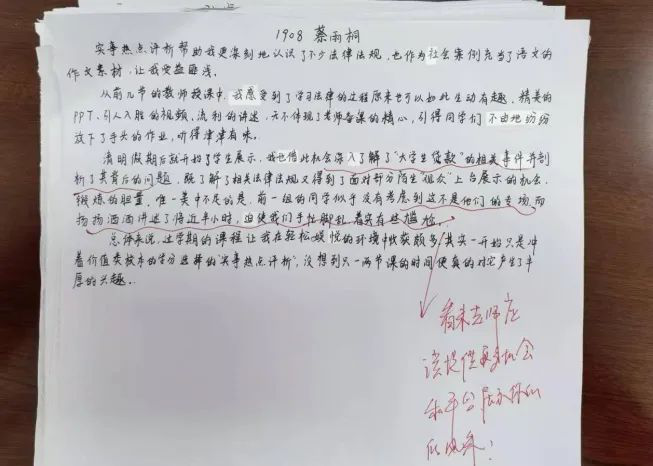 1908 蔡雨桐
实事热点评析帮助我更深刻地认识了不少法律法规,也作为社会案例充当了语文的
作文素材,让我受益匪浅。
从前几节的教师授课中,我感受到了学习法律的过程原来也可以如此生动有趣,精美的
PPT、引人入胜的视频、流利的讲述,无不体现了老师备课的精心,引得同学们不由地纷纷
放下了手头的作业,听得津津有味。
清明假期后就开始了学生展示,我也借此机会深入了解了"大学生贷款"的相关事件并剖
析了其背后的问题,既了解了相关法律法规又得到了面对部分陌生"观众"上台展示的机会,
锻炼的胆量。唯一美中不足的是,前一组的同学似乎没有考虑到这不是他们的专场,而
扬扬洒洒讲述了将近半小时,迫使我们手忙脚乱着实有些尴尬。
总评来说,这学期的课程让我在轻松娱悦的环境中收获颇多,其实一开始只是冲
着价值类校本的学分选择的"实事热点评析",没想到只一两节课的时间便真的对它产生了丰
厚的兴趣。
看来老师应
该提供更多机会
和平台展示你们
的风采!